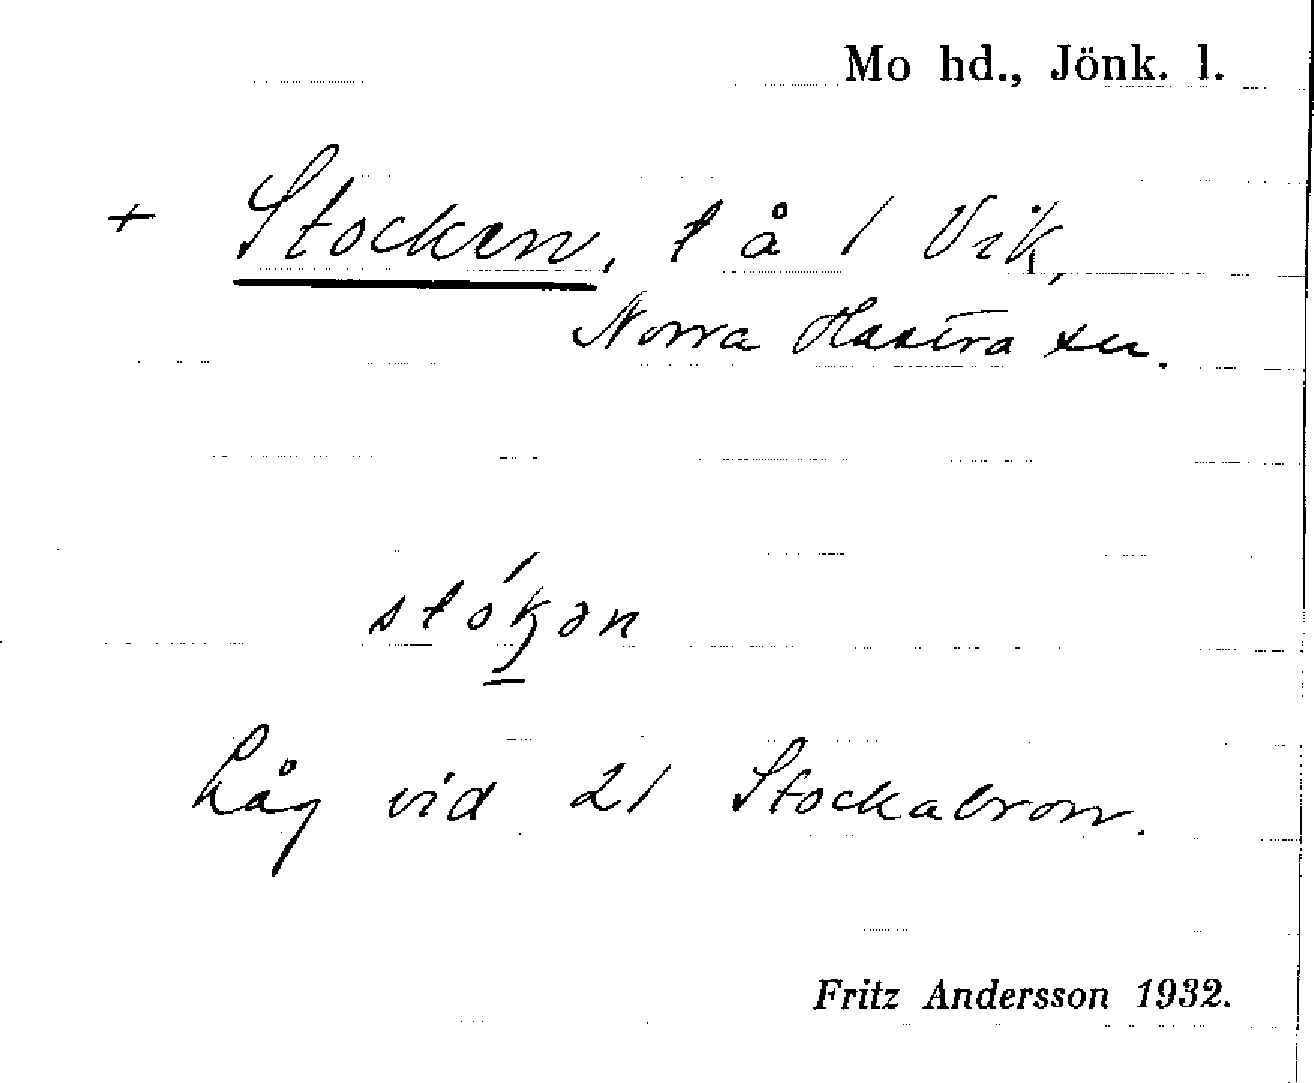 Mo hd., Jönk. l.
+ Stocken, t å 1 Vik,
Norra Hestra sn.
stókən
Låg vid 21 Stockabron.
Fritz Andersson 1932.